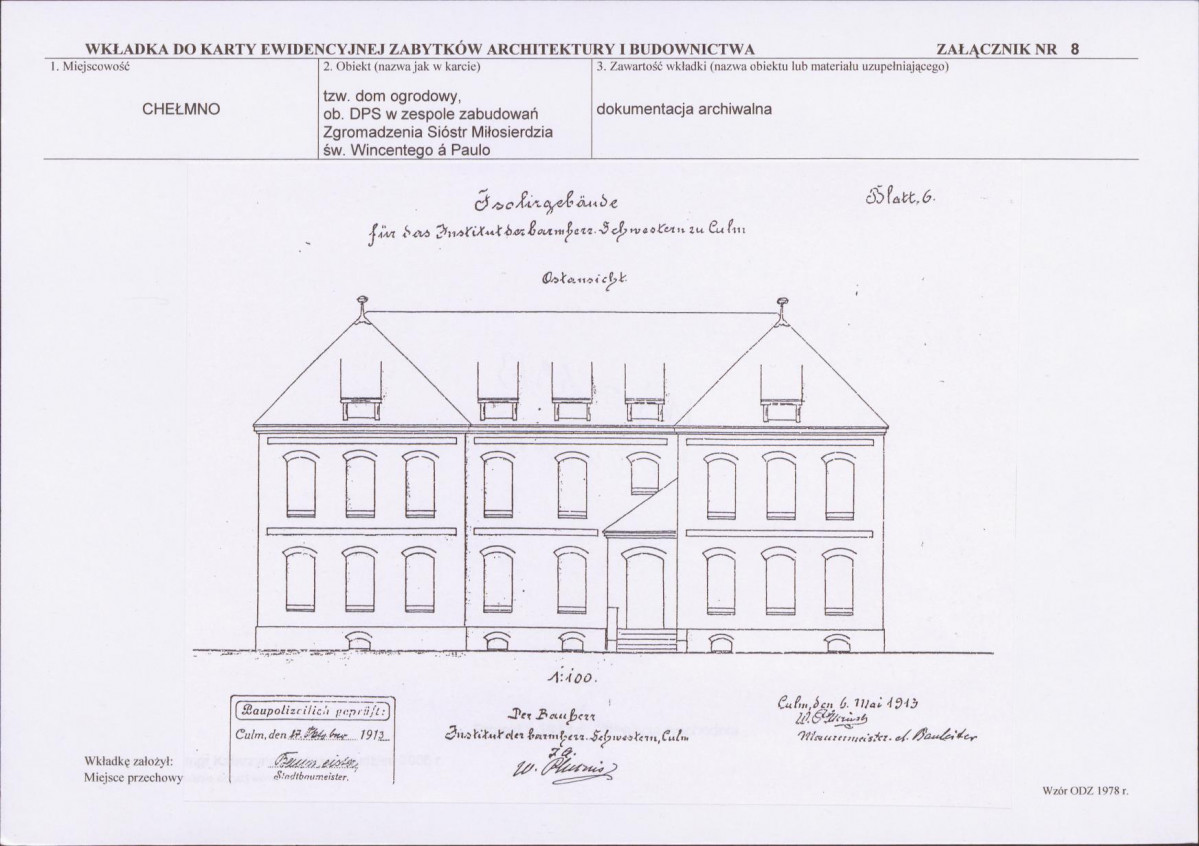 WKŁADKA DO KARTY EWIDENCYJNEJ ZABYTKÓW ARCHITEKTURY I BUDOWNICTWA ZAŁĄCZNIK NR 8
1. Miejscowość
CHEŁMNO
2. Obiekt (nazwa jak w karcie)
tzw. dom ogrodowy,
ob. DPS w zespole zabudowań
Zgromadzenia Sióstr Miłosierdzia
św. Wincentego á Paulo
3. Zawartość wkładki (nazwa obiektu lub materiału uzupełniającego)
dokumentacja archiwalna
Isolirgebäude
Blatt. 6.
für das Institut der barmherz. Schwestern zu Culm
Ostansicht.
1:100.
Baupolizeilich geprüft:
Culm, den 1913
Stadtbaumeister.
Der Bauherr
Institut der barmherz. Schwestern, Culm
Culm, den 6. Mai 1913
Maurermeister. u. Bauleiter
Wkładkę założył:
Miejsce przechowy
Wzór ODZ 1978 r.